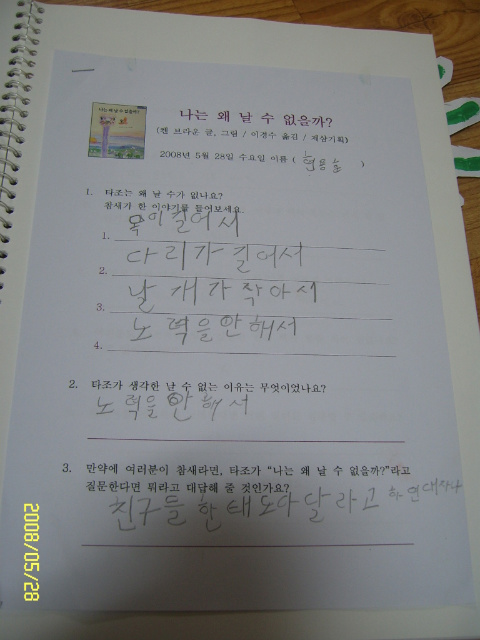 나는 왜 날 수 없을까?
(켄 브라운 글, 그림 / 이경수 옮김 / 계상기획)
2008년 5월 28일 수요일 이름 ( )
1. 타조는 왜 날 수가 없나요?
참새가 한 이야기를 들어보세요.
1. 목이길어서
2. 다리가길어서
3. 날개가작아서
4. 노력을안해서
2. 타조가 생각한 날 수 없는 이유는 무엇이었나요?
노력을안해서
3. 만약에 여러분이 참새라면, 타조가 "나는 왜 날 수 없을까?"라고
질문한다면 뭐라고 대답해 줄 것인가요?
친구들한태도아달라고
2008/05/28